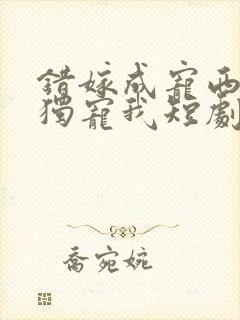 錯嫁成寵西
獨寵我短劇
喬宛婉